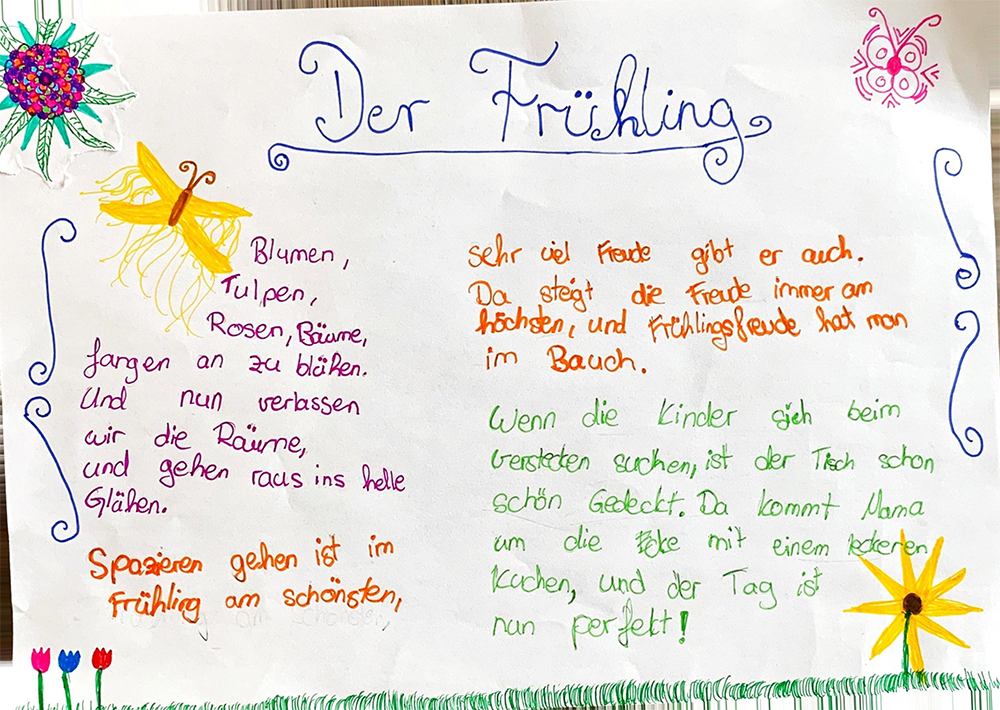 Der Frühling
Blumen,
Tulpen,
Rosen, Bäume,
fangen an zu blühen.
Und nun verlassen
wir die Räume,
und gehen raus ins helle
Glühen.
Spazieren gehen ist im
Frühling am schönsten,
sehr viel Freude gibt er auch.
Da steigt die Freude immer am
höchsten, und Frühlingsfreude hat man
im Bauch.
Wenn die Kinder sich beim
verstecken suchen, ist der Tisch schon
schön Gedeckt. Da kommt Mama
um die Ecke mit einem leckeren
Kuchen, und der Tag ist
nun perfekt!